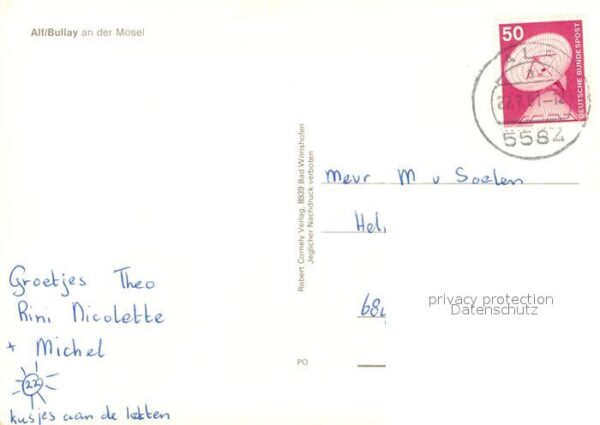 Alf/Bullay an der Mosel
50
DEUTSCHE BUNDESPOST
5584
Robert Cornely Verlag, 8939 Bad Wörishofen
Jeglicher Nachdruck verboten
Mevr M v Soelen
Heli
68
privacy protection
Datenschutz
Groetjes Theo
Rini Nicolette
+ Michel
22
kusjes aan de katten
PO